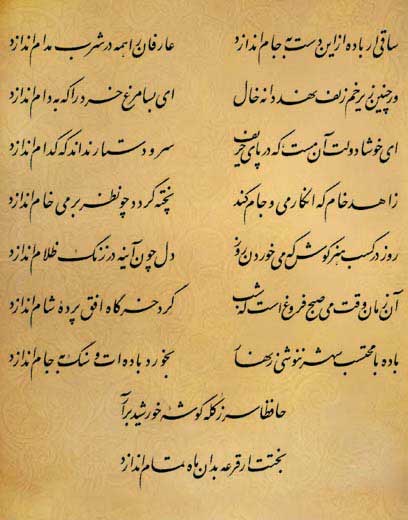 ساقی ار باده از این دست به جام اندازد عارفان را همه در شرب مدام اندازد
ور چنین زیر خم زلف نهد دانه خال ای بسا مرغ خرد را که به دام اندازد
ای خوشا دولت آن مست که در پای حریف سر و دستار نداند که کدام اندازد
زاهد خام که انکار می و جام کند پخته گردد چو نظر بر می خام اندازد
روز در کسب هنر کوش که می خوردن روز دل چون آینه در زنگ ظلام اندازد
آن زمان وقت می صبح فروغ است که شب گرد خرگاه افق پرده شام اندازد
باده با محتسب شهر ننوشی زنهار بخورد باده ات و سنگ به جام اندازد
حافظا سر ز کله گوشه خورشید برآر
بختت ار قرعه بدان ماه تمام اندازد